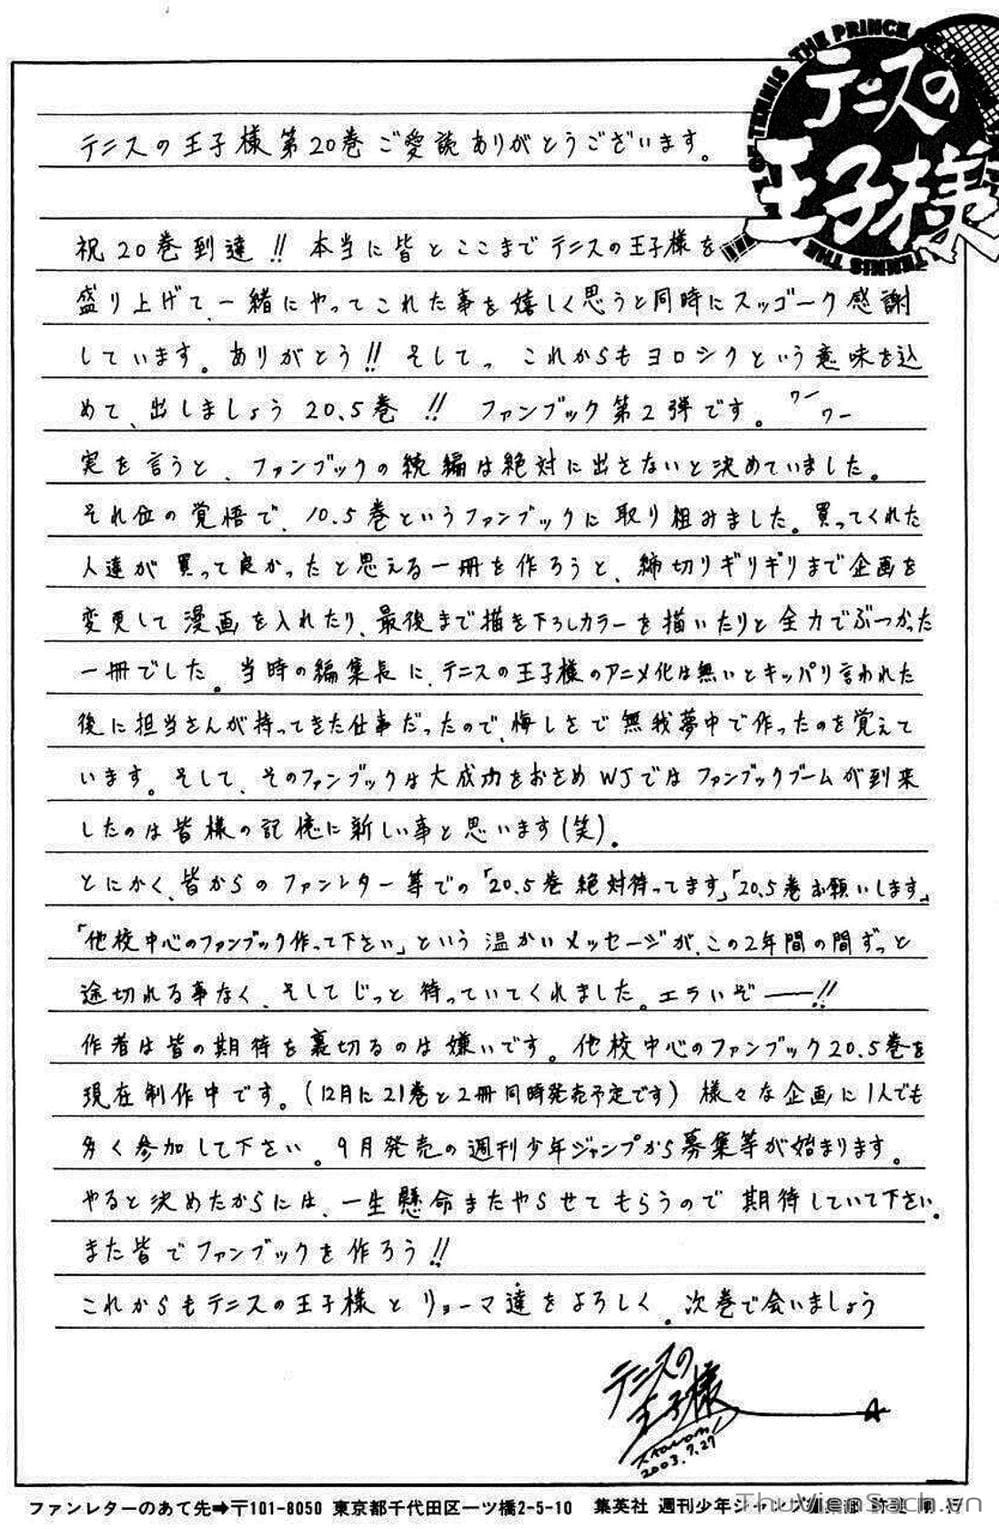 THE PRINCE OF TENNIS
テニスの
王子様
テニスの王子様第20巻ご愛読ありがとうございます。
祝20巻到達!! 本当に皆とここまでテニスの王子様を
盛り上げて、一緒にやってこれた事を嬉しく思うと同時にスッゴーク感謝
しています。ありがとう!! そしてっ これからもヨロシクという意味を込
めて、出しましょう20.5巻!! ファンブック第2弾です。ワーワー
実を言うと、ファンブックの続編は絶対に出さないと決めていました。
それ位の覚悟で、10.5巻というファンブックに取り組みました。買ってくれた
人達が買って良かったと思える一冊を作ろうと、締切りギリギリまで企画を
変更して漫画を入れたり、最後まで描き下ろしカラーを描いたりと全力でぶつかった
一冊でした。当時の編集長に、テニスの王子様のアニメ化は無いとキッパリ言われた
後に担当さんが持ってきた仕事だったので、悔しさで無我夢中で作ったのを覚えて
います。そして、そのファンブックは大成功をおさめWJではファンブックブームが到来
したのは皆様の記憶に新しい事と思います(笑)。
とにかく、皆からのファンレター等での「20.5巻絶対待ってます」「20.5巻お願いします」
「他校中心のファンブック作って下さい」という温かいメッセージが、この2年間の間ずっと
途切れる事なく、そしてじっと待っていてくれました。エラいぞ――!!
作者は皆の期待を裏切るのは嫌いです。他校中心のファンブック20.5巻を
現在制作中です。(12月に21巻と2冊同時発売予定です)様々な企画に1人でも
多く参加して下さい。9月発売の週刊少年ジャンプから募集等が始まります。
やると決めたからには、一生懸命またやらせてもらうので期待していて下さい。
また皆でファンブックを作ろう!!
これからもテニスの王子様とリョーマ達をよろしく。次巻で会いましょう
テニスの
王子様
2003.7.27
ファンレターのあて先➡〒101-8050 東京都千代田区一ツ橋2-5-10 集英社 週刊少年ジャンプ
ThuVienSach.vn